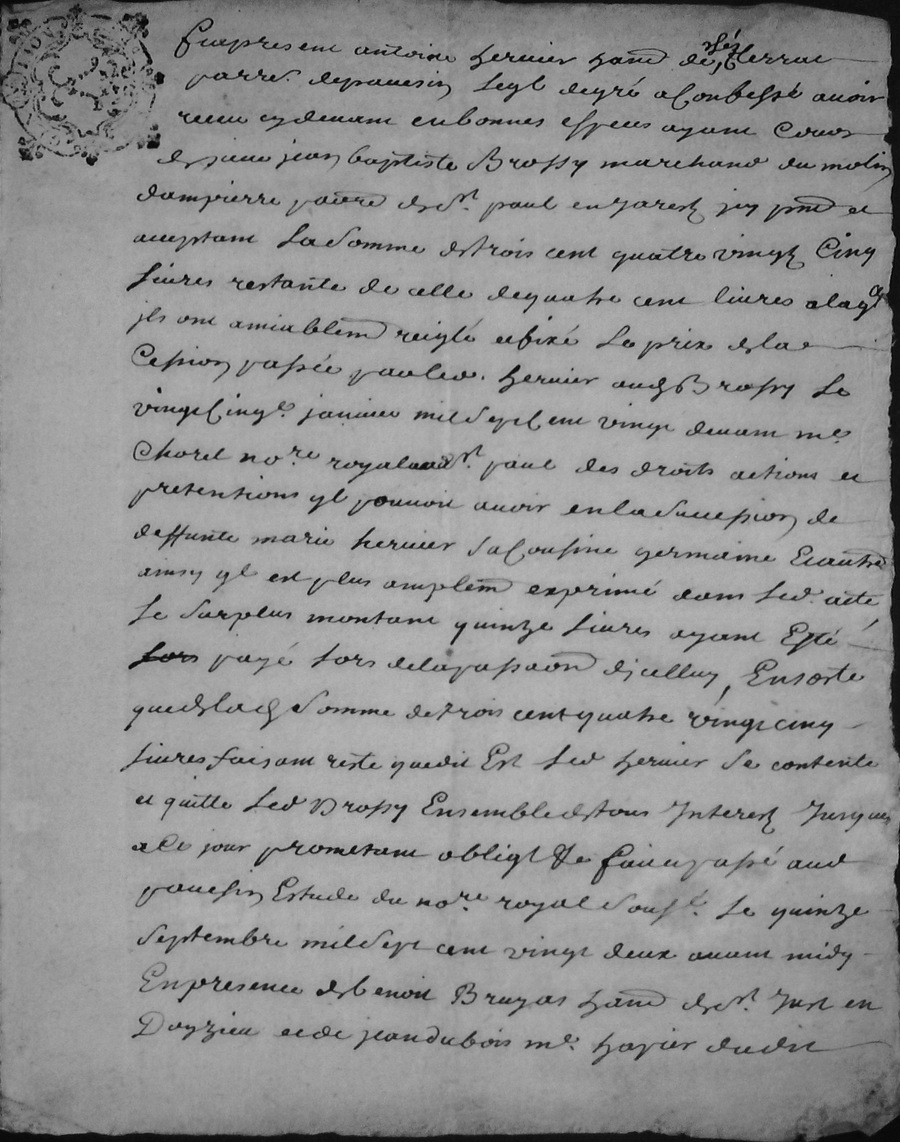 fut present antoine hervier hant de chez Cherrat
parre. depavesin Leql degré a Confessé avoir
receu cy devant en bonnes especes ayant Cours
de sieur jean baptiste Brossy marchand du molin
dampierre parre de st. paul en Jarest icy pnt et
aceptant La Somme de trois cent quatre vingt Cinq
livres restante de celle de quatre cent livres a laqle
jls ont amiablemt reiglé et fixé Le prix de la
Cession passée par led. hervier aud Brossy Le
vingt Cinqe. janvier mil Sept Cent vingt devant me
Chorel nore royal aud st. paul des droits actions et
pretentions ql pouvoit avoir en la Succession de
deffunte marie hervier Sa Cousine germaine Et autre
ainsy ql est plus amplemt exprimé dans Led. acte
Le Surplus montant quinze livres ayant Esté
lors payé lors de la passaon dicelluy, En sorte
que de lad Somme de trois cent quatre vingt cinq
livres faisant reste que dit Est Led hervier Se contente
et quitte Led Brossy Ensemble de tous Interest Jusques
a Ce jour prometant obligt &e fait et passé aud
pavesin Estude du nore royal Soussé. Le quinze
Septembre mil Sept cent vingt deux avant midy
En presence de benoit Bruyas hant de st. Just en
Doyzieu et de jean dubois me. dudit